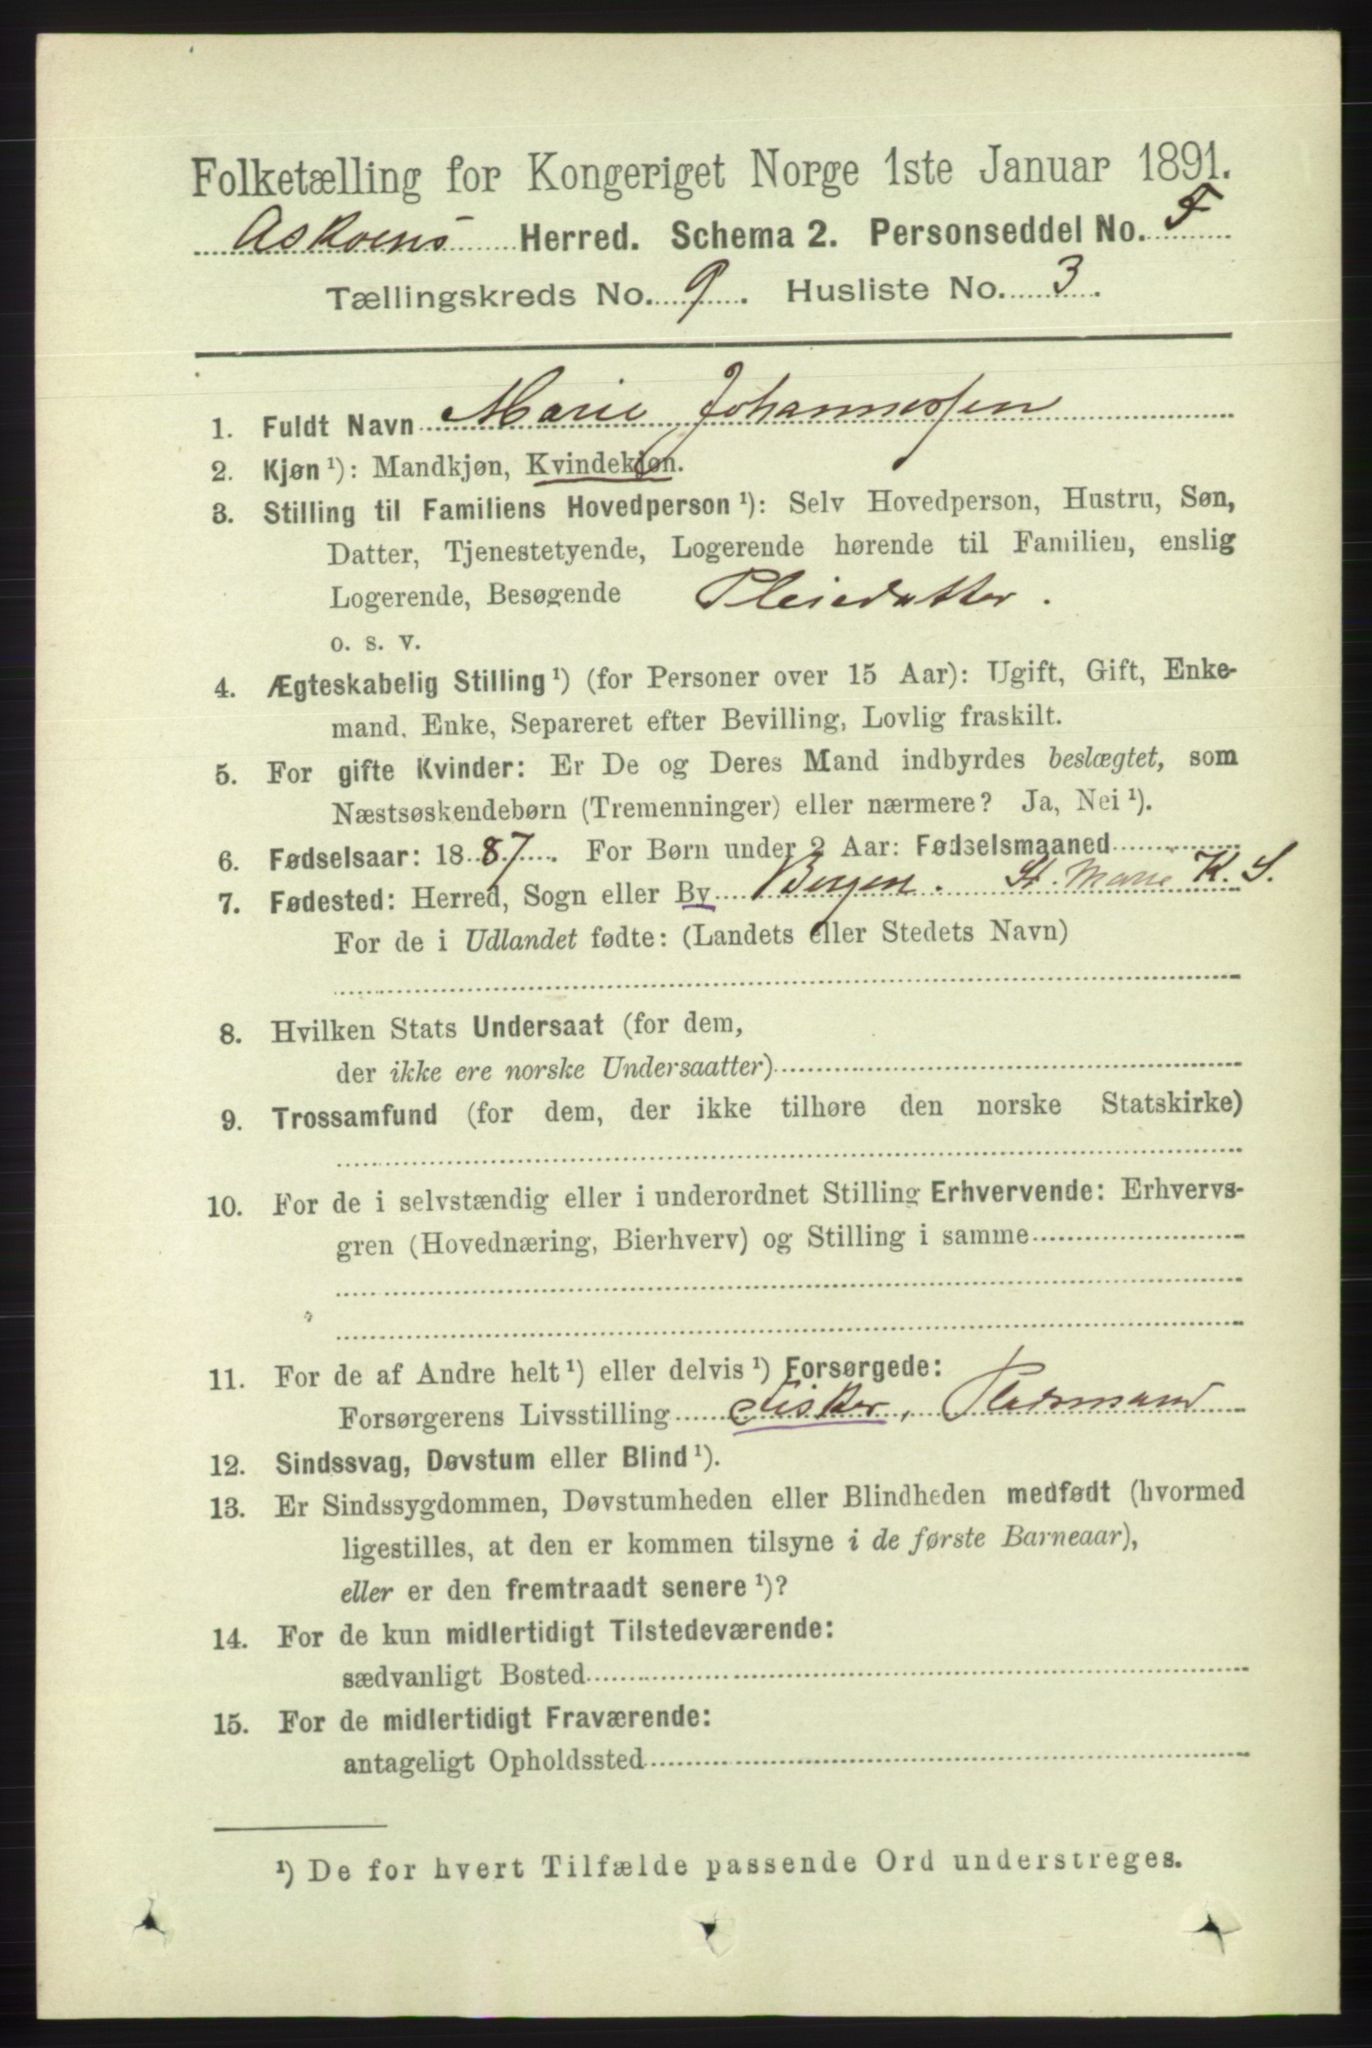 Folketælling for Kongeriget Norge 1ste Januar 1891.
Askøens Herred. Schema 2. Personseddel No. F
Tællingskreds No. 9. Husliste No. 3.
1. Fuldt Navn Marie Johannessen
2. Kjøn ¹): Mandkjøn, Kvindekjøn.
3. Stilling til Familiens Hovedperson ¹): Selv Hovedperson, Hustru, Søn,
Datter, Tjenestetyende, Logerende hørende til Familien, enslig
Logerende, Besøgende Pleiedatter.
o. s. v.
4. Ægteskabelig Stilling ¹) (for Personer over 15 Aar): Ugift, Gift, Enke-
mand, Enke, Separeret efter Bevilling, Lovlig fraskilt.
5. For gifte Kvinder: Er De og Deres Mand indbyrdes beslægtet, som
Næstsøskendebørn (Tremenninger) eller nærmere? Ja, Nei ¹).
6. Fødselsaar: 1887. For Børn under 2 Aar: Fødselsmaaned
7. Fødested: Herred, Sogn eller By Bergen. St. Marie K. S.
For de i Udlandet fødte: (Landets eller Stedets Navn)
8. Hvilken Stats Undersaat (for dem,
der ikke ere norske Undersaatter)
9. Trossamfund (for dem, der ikke tilhøre den norske Statskirke)
10. For de i selvstændig eller i underordnet Stilling Erhvervende: Erhvervs-
gren (Hovednæring, Bierhverv) og Stilling i samme
11. For de af Andre helt ¹) eller delvis ¹) Forsørgede:
Forsørgerens Livsstilling Fisker, Pladsmand
12. Sindssvag, Døvstum eller Blind ¹).
13. Er Sindssygdommen, Døvstumheden eller Blindheden medfødt (hvormed
ligestilles, at den er kommen tilsyne i de første Barneaar),
eller er den fremtraadt senere ¹)?
14. For de kun midlertidigt Tilstedeværende:
sædvanligt Bosted
15. For de midlertidigt Fraværende:
antageligt Opholdssted
¹) De for hvert Tilfælde passende Ord understreges.